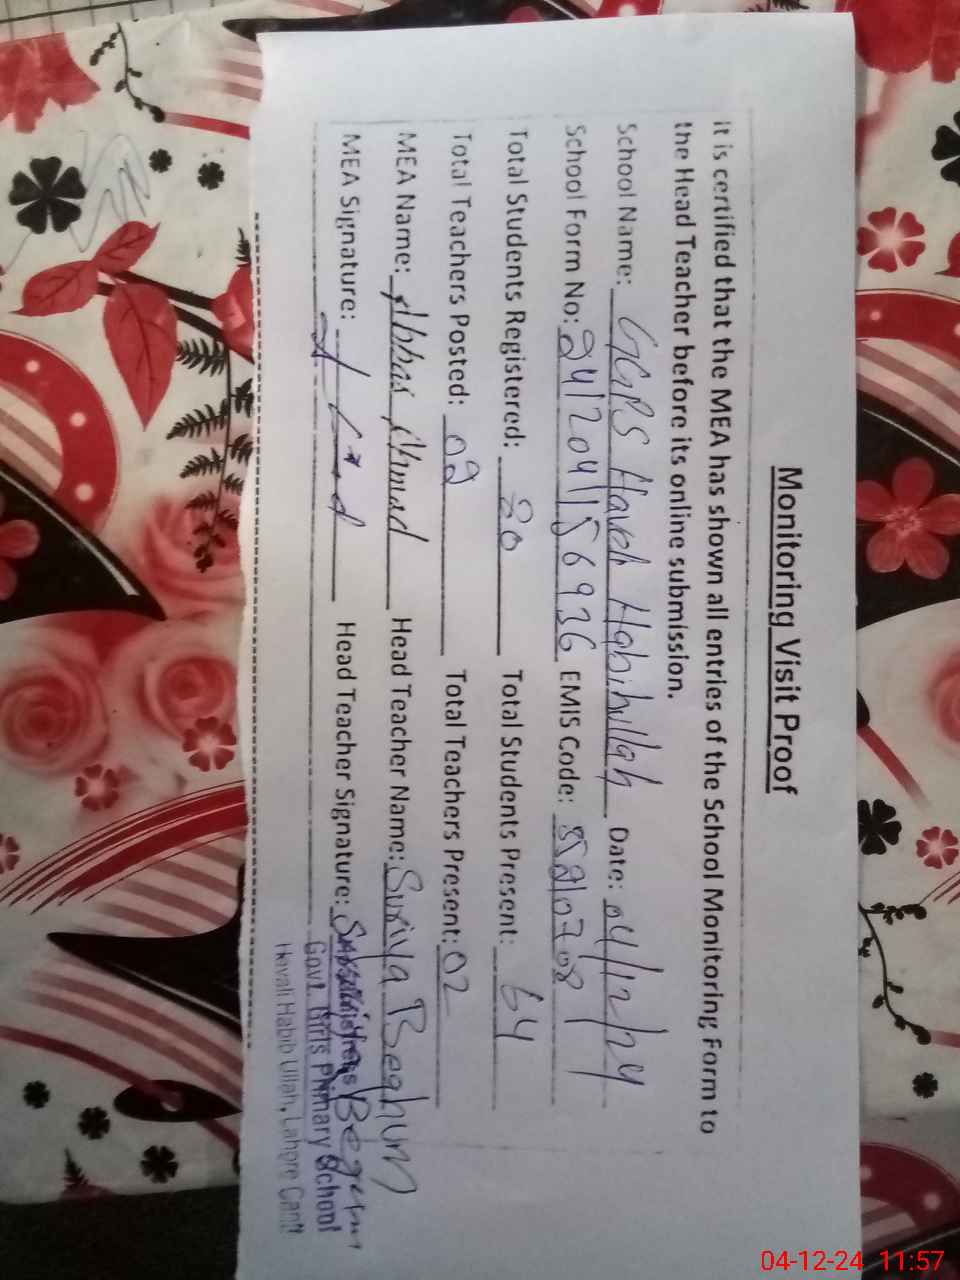 Monitoring Visit Proof
It is certified that the MEA has shown all entries of the School Monitoring Form to
the Head Teacher before its online submission.
School Name: GGPS Haveli Habibullah Date: 04/12/24
School Form No: 241204115 6936 EMIS Code: 35210708
Total Students Registered: 80 Total Students Present: 64
Total Teachers Posted: 02 Total Teachers Present: 02
MEA Name: Abbas Ahmad Head Teacher Name: Suriya Beghum
MEA Signature: Head Teacher Signature: Begum
Govt. Girls Primary School
Havali Habib Ullah, Lahore Cantt
04-12-24 11:57